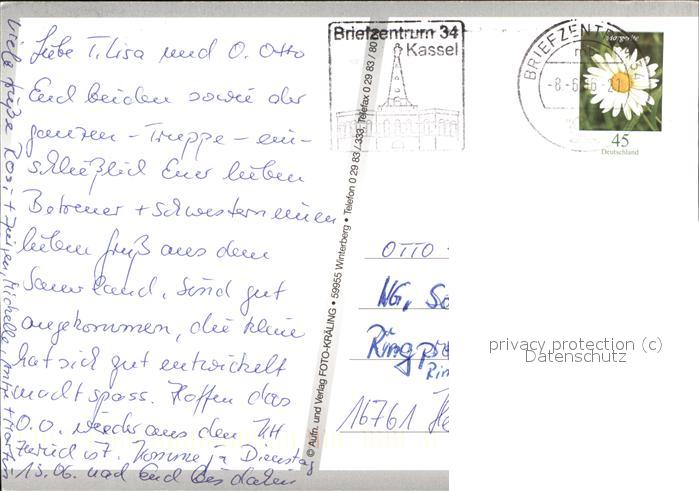 Liebe T. Lisa und O. Otto
Euch beiden sowie der
ganzen - Truppe - ein-
schließlich Euer lieben
Betreuer + Schwestern einen
lieben Gruß aus dem
Sauerland, sind gut
angekommen, die kleine
hat sich gut entwickelt
macht spass. Hoffen das
O. O. wieder aus den KH
zurück ist. Komme ja Dienstag
13.06. nach Euch bis dahin
Viele Grüße Rosi + Jürgen, Michelle, Antje + Martin
Briefzentrum 34
Kassel
BRIEFZENT
34
-8.-6.06-21
Margerite
45
Deutschland
© Aufn. und Verlag FOTO-KRÄLING • 59955 Winterberg • Telefon 0 29 83 / 333, Telefax 0 29 83 / 80
OTTO
WG,
Ring
Rin
16761 He
privacy protection (c)
Datenschutz